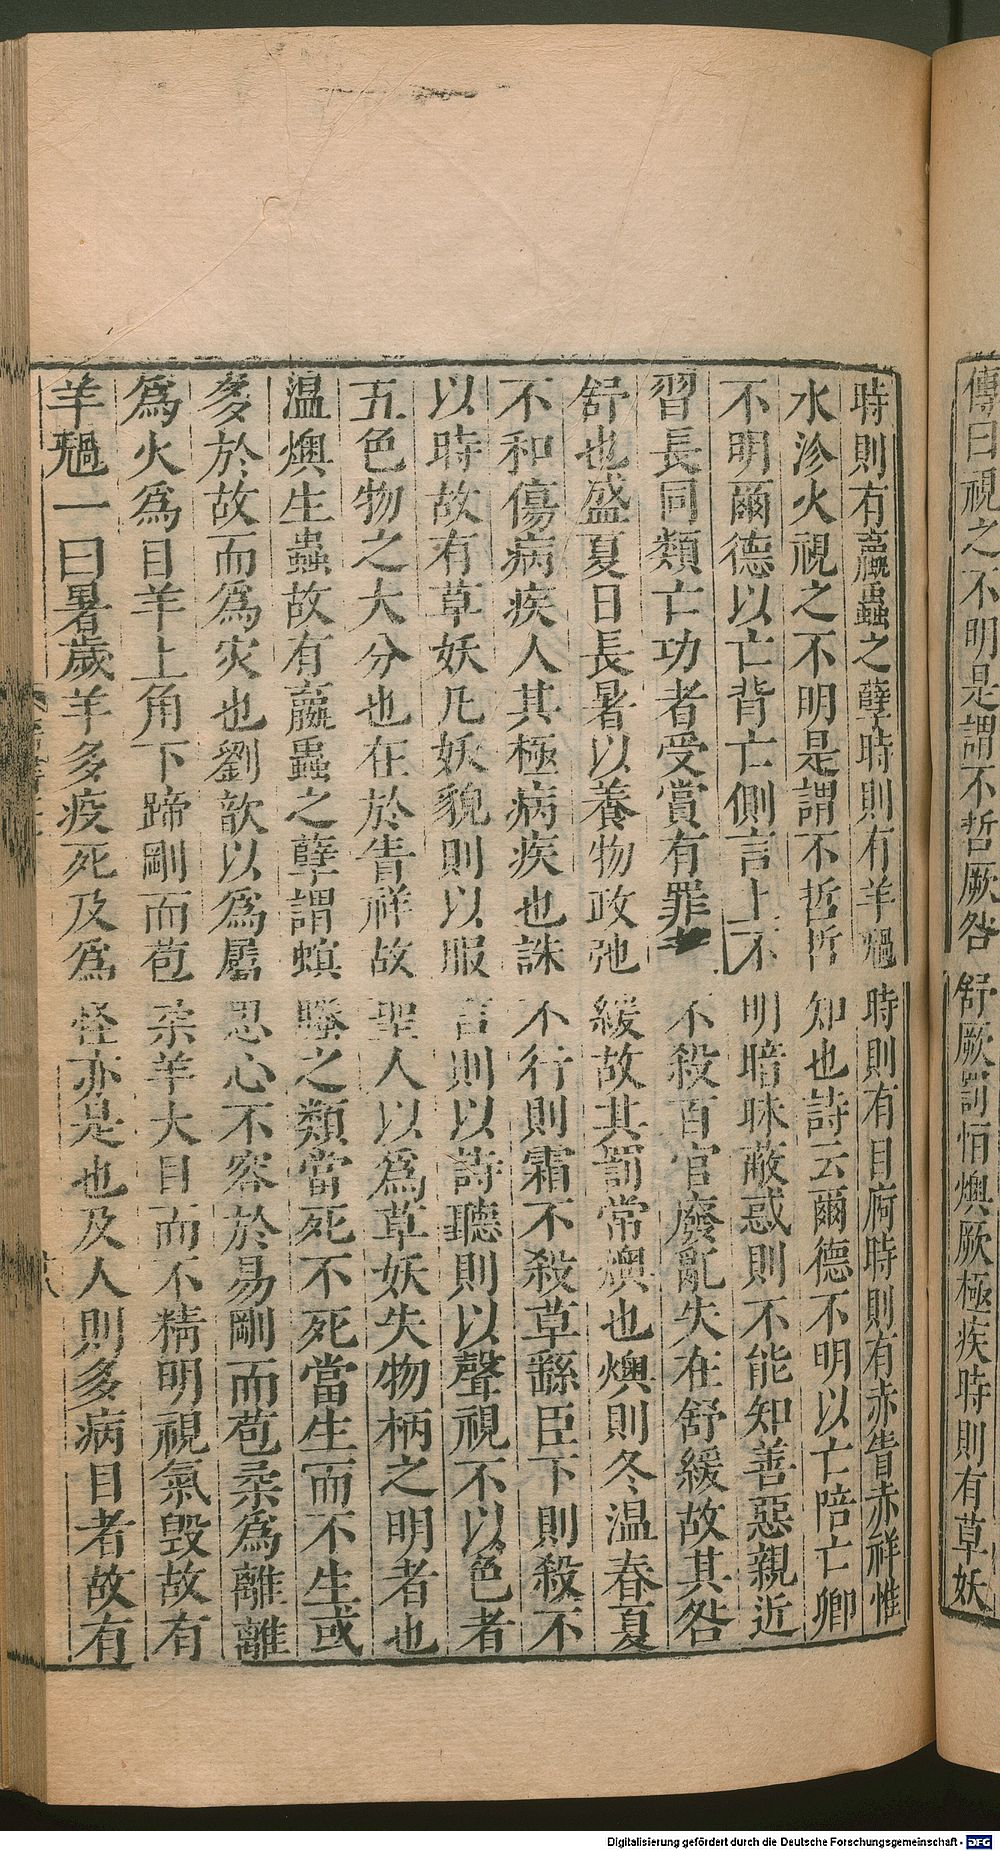 傳曰視之不明是謂不哲厥咎舒厥罰恒燠厥極疾時則有草妖
時則有蠃蟲之孽時則有羊旤時則有目痾時則有赤眚赤祥惟
水沴火視之不明是謂不哲哲知也詩云爾德不明以亡陪亡卿
不明爾德以亡背亡側言上不明暗昧蔽惑則不能知善惡親近
習長同類亡功者受賞有罪者不殺百官廢亂失在舒緩故其咎
舒也盛夏日長暑以養物政弛緩故其罰常燠也燠則冬温春夏
不和傷病疾人其極病疾也誅不行則霜不殺草繇臣下則殺不
以時故有草妖凡妖貌則以服言則以詩聽則以聲視不以色者
五色物之大分也在於眚祥故聖人以爲草妖失物柄之明者也
温燠生蟲故有蠃蟲之孽謂螟螣之類當死不死當生而不生或
多於故而爲灾也劉歆以爲屬思心不容於易剛而苞柔爲離離
爲火爲目羊上角下蹄剛而苞柔羊大目而不精明視氣毁故有
羊旤一曰暑歲羊多疫死及爲怪亦是也及人則多病目者故有
Digitalisierung gefördert durch die Deutsche Forschungsgemeinschaft - DFG